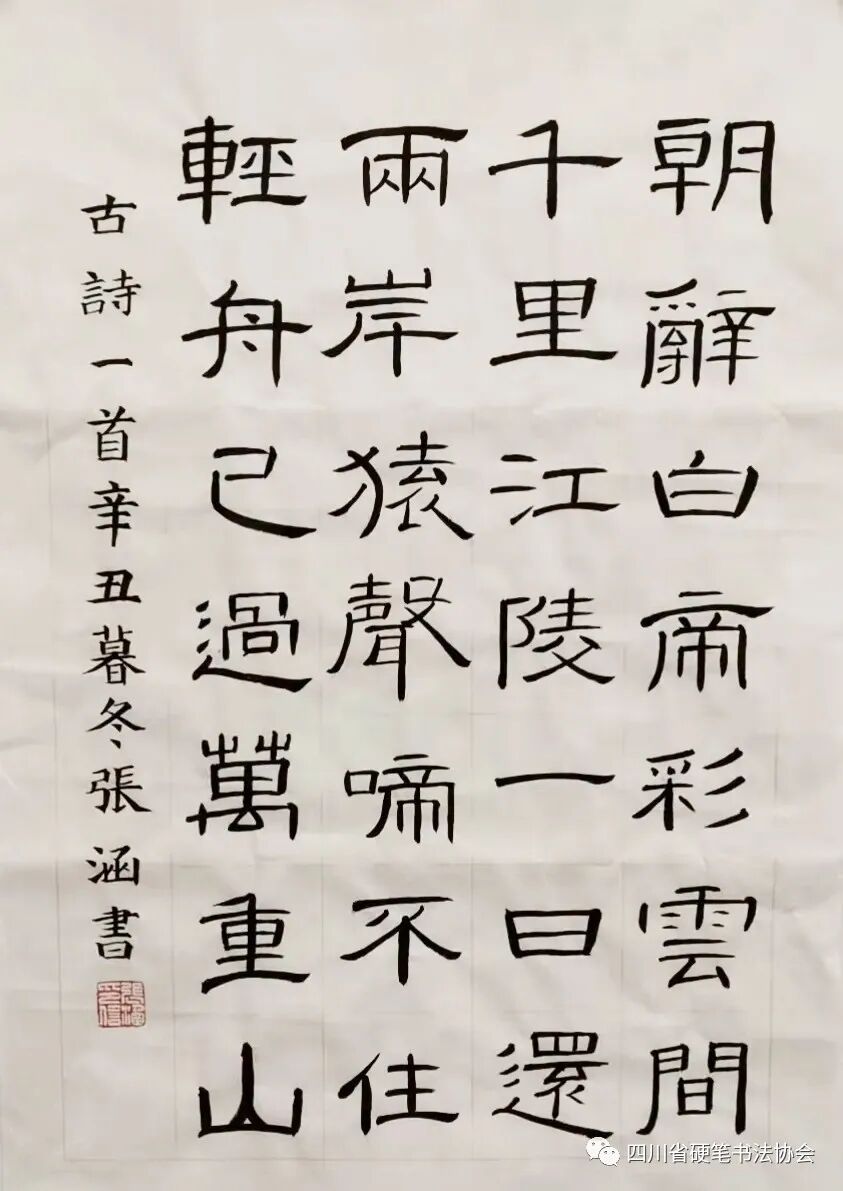 朝辭白帝彩雲間
千里江陵一日還
兩岸猿聲啼不住
輕舟已過萬重山
古詩一首辛丑暮冬張涵書
四川省硬笔书法协会